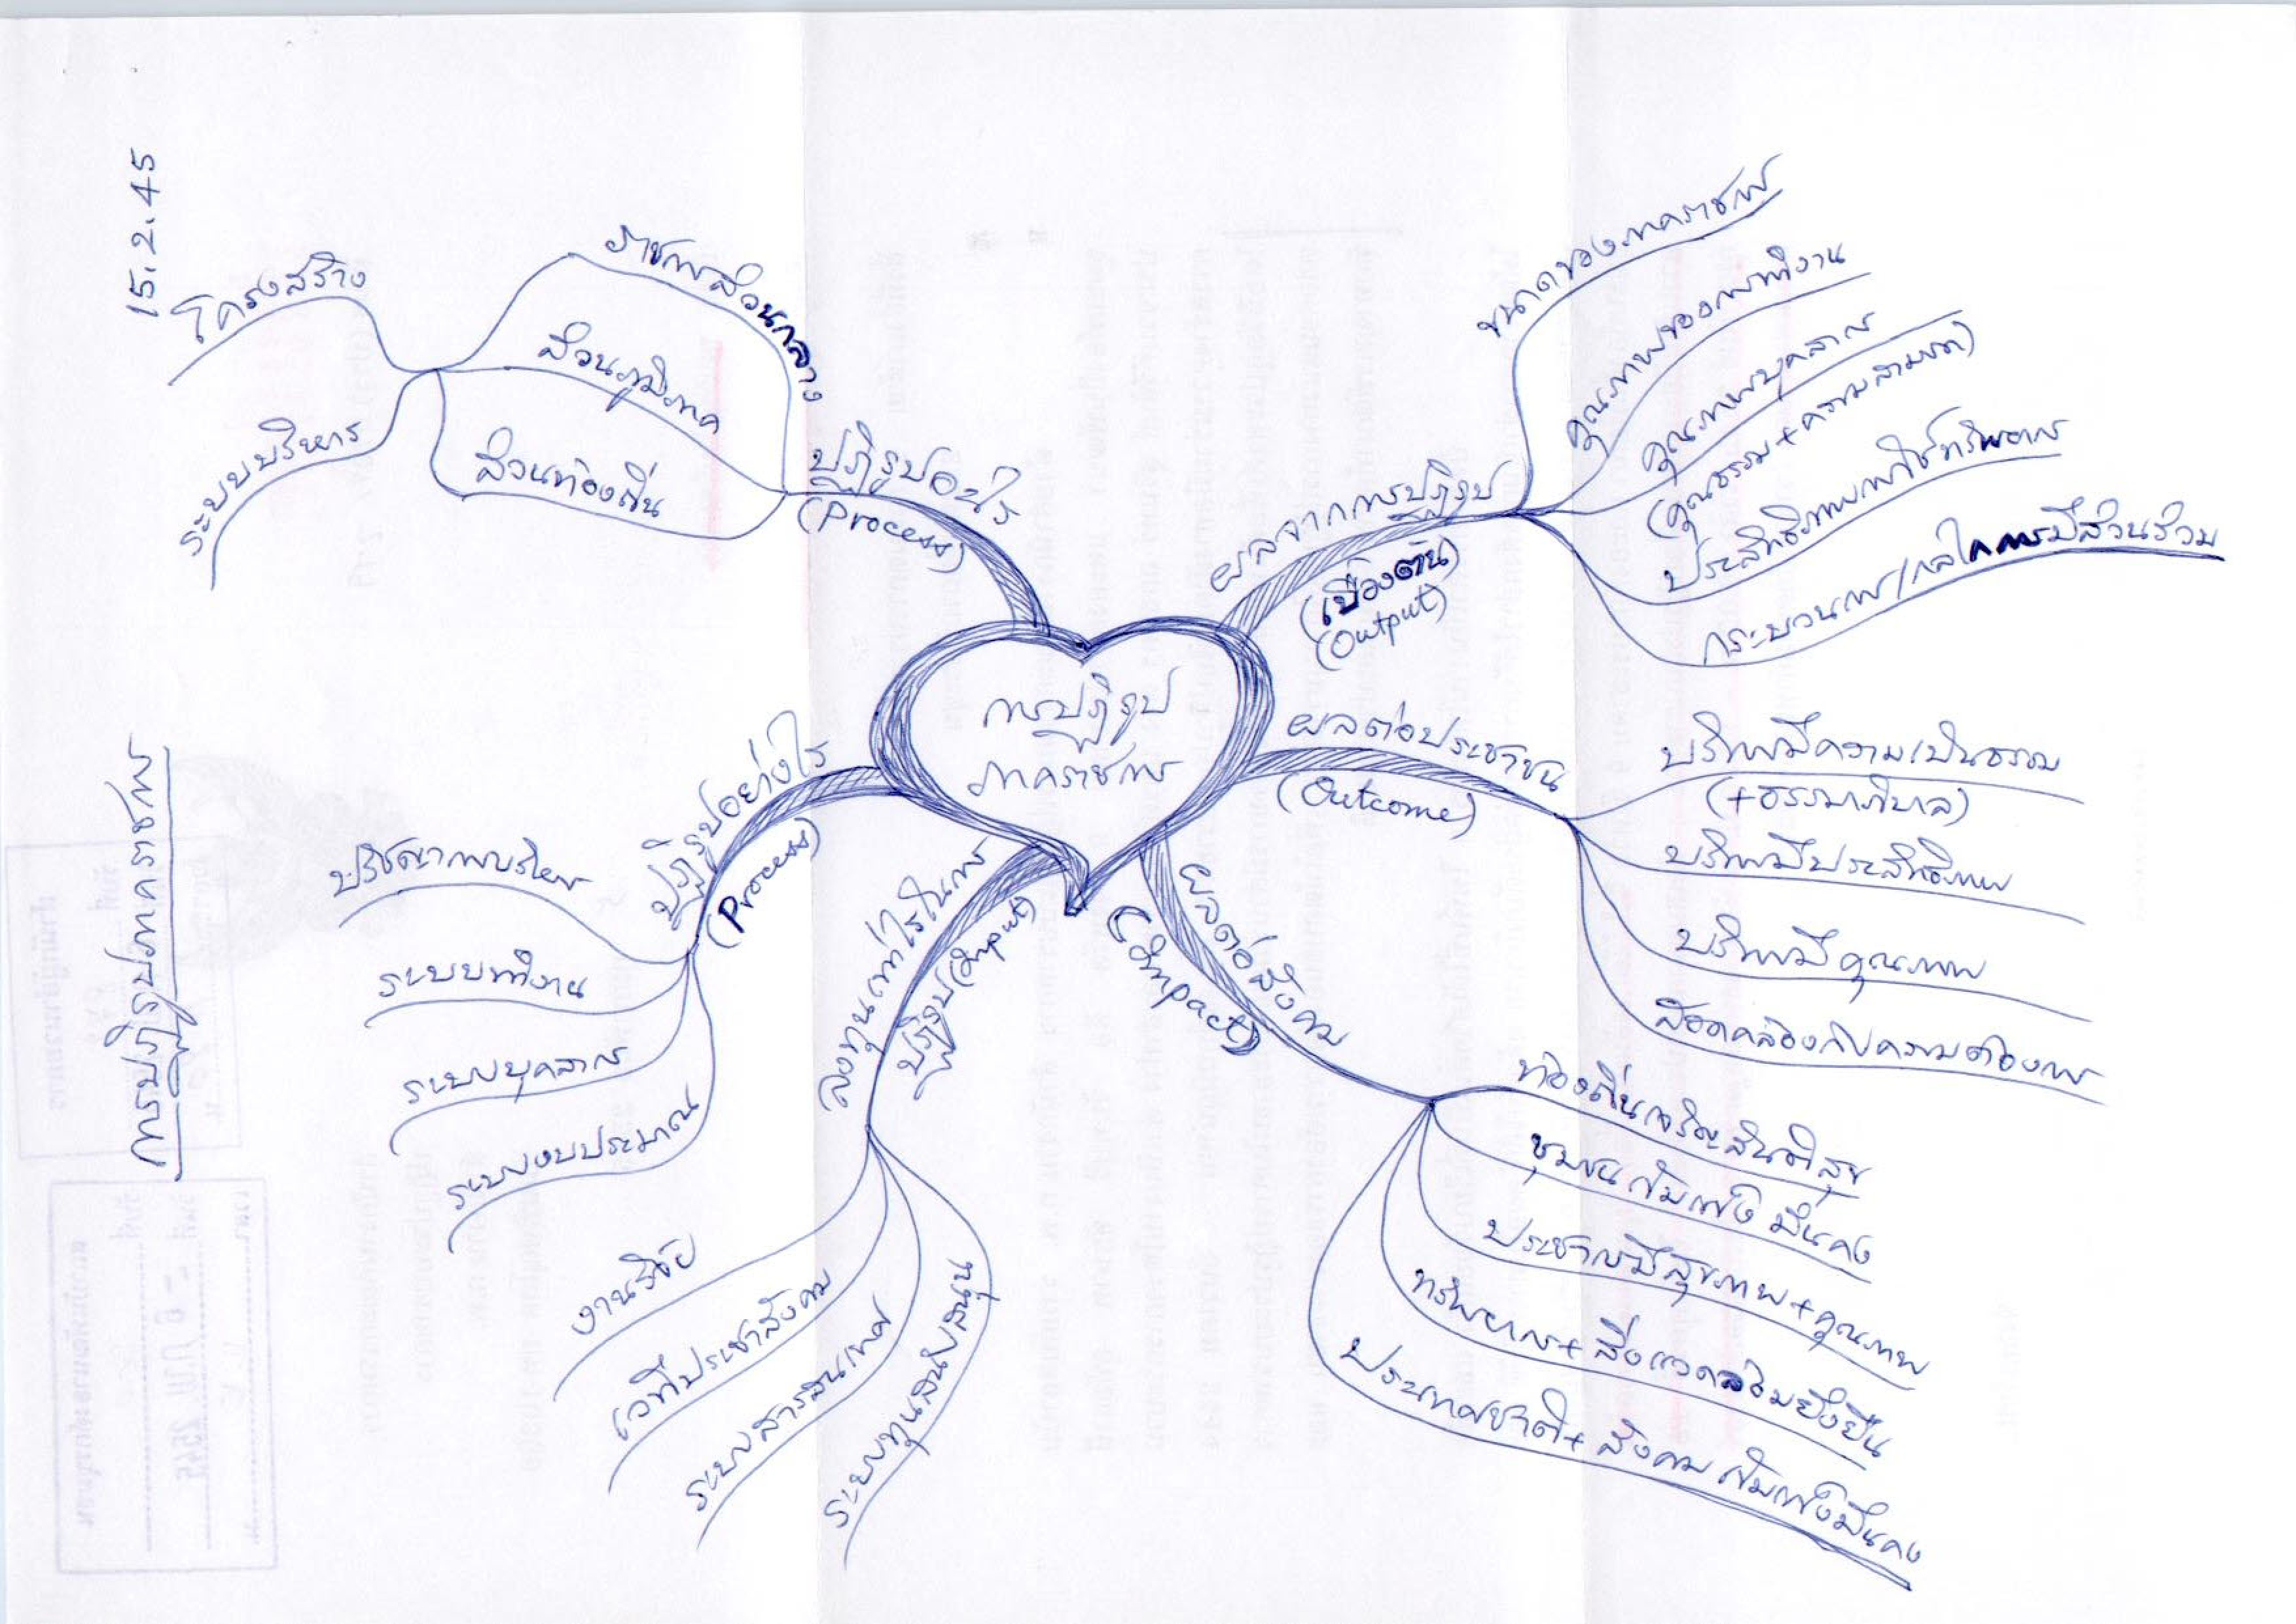 15.2.45
การปฏิรูปภาคราชการ
การปฏิรูป
ภาคราชการ
ปฏิรูปอะไร
(Process)
ราชการส่วนกลาง
ส่วนภูมิภาค
ส่วนท้องถิ่น
โครงสร้าง
ระบบบริหาร
ปฏิรูปอย่างไร
(Process)
ปรัชญาการบริหาร
ระบบทำงาน
ระบบบุคลากร
ระบบงบประมาณ
ลงทุนเท่าไรในการ
ปฏิรูป (Input)
งานวิจัย
เวทีประชาสังคม
ระบบสารสนเทศ
ระบบทุนสนับสนุน
ผลจากการปฏิรูป
(เบื้องต้น)
(Output)
ขนาดของภาคราชการ
คุณภาพของการทำงาน
คุณภาพบุคลากร
(คุณธรรม+ความสามารถ)
ประสิทธิภาพการใช้ทรัพยากร
กระบวนการ/กลไกการมีส่วนร่วม
ผลต่อประชาชน
(Outcome)
บริการมีความเป็นธรรม
(+ธรรมาภิบาล)
บริการมีประสิทธิภาพ
บริการมีคุณภาพ
สอดคล้องกับความต้องการ
ผลต่อสังคม
(Impact)
ท้องถิ่นเจริญสันติสุข
ชุมชนเข้มแข็ง มั่นคง
ประชาชนมีสุขภาพ+คุณภาพ
ทรัพยากร+สิ่งแวดล้อมยั่งยืน
ประเทศชาติ+สังคมเข้มแข็งมั่นคง